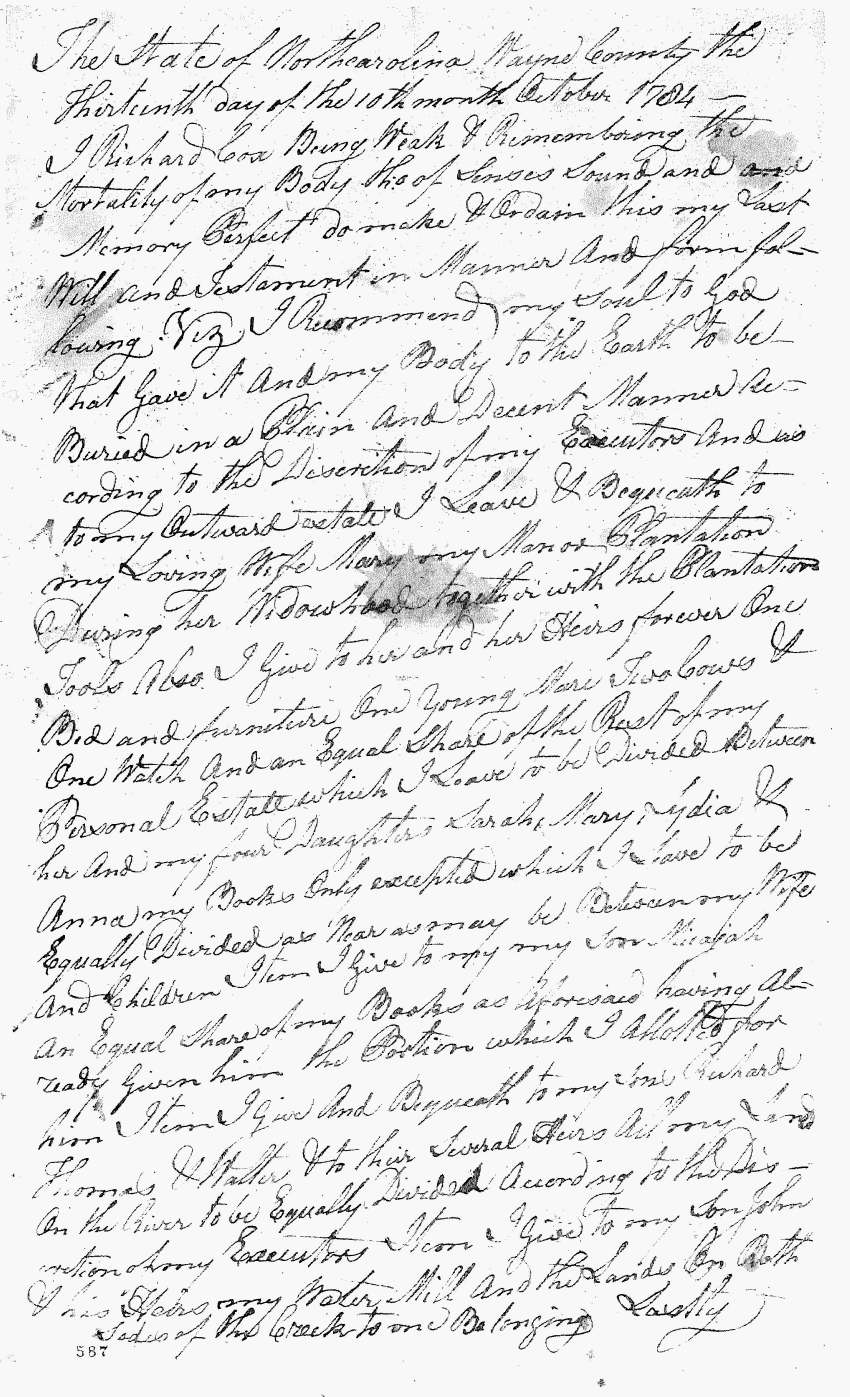 The State of Northcarolina Wayne County the
Thirteenth day of the 10th month October 1784 —
I Richard Cox Being Weak & Remembering the
Mortality of my Body tho of Senses Sound and and
Memory Perfect do make & Ordain this my Last
Will and Testament in Manner And form fol-
lowing Viz I Recommend my Soul to God
that Gave it And my Body to the Earth to be
Buried in a Plain And Decent Manner Ac-
cording to the Discretion of my Executors And as
to my Outward estate I Leave & Bequeath to
my Loving Wife Mary my Manor Plantation
During her Widowhood together with the Plantation
Tools Also I Give to her and her Heirs forever One
Bed and furniture One Young Mare Two Cowes &
One Watch And an Equal Share of the Rest of my
Personal Estate which I Leave to be Divided Between
her And my four Daughters Sarah, Mary, Lydia &
Anna my Books Only excepted which I Leave to be
Equally Divided as Near as may be Between my Wife
And Children Item I Give to my my Son Micajah
An Equal Share of my Books as Aforesaid having Al-
ready Given him the Portion which I Allotted for
him Item I Give And Bequeath to my Sons Richard
Thomas & Walter & to their Several Heirs All my Land
On the River to be Equally Divided According to the Dis-
cretion of my Executors Item I Give to my Son John
& his Heirs my Water Mill And the Lands On Both
Sides of the Creek to me Belonging Lastly
587